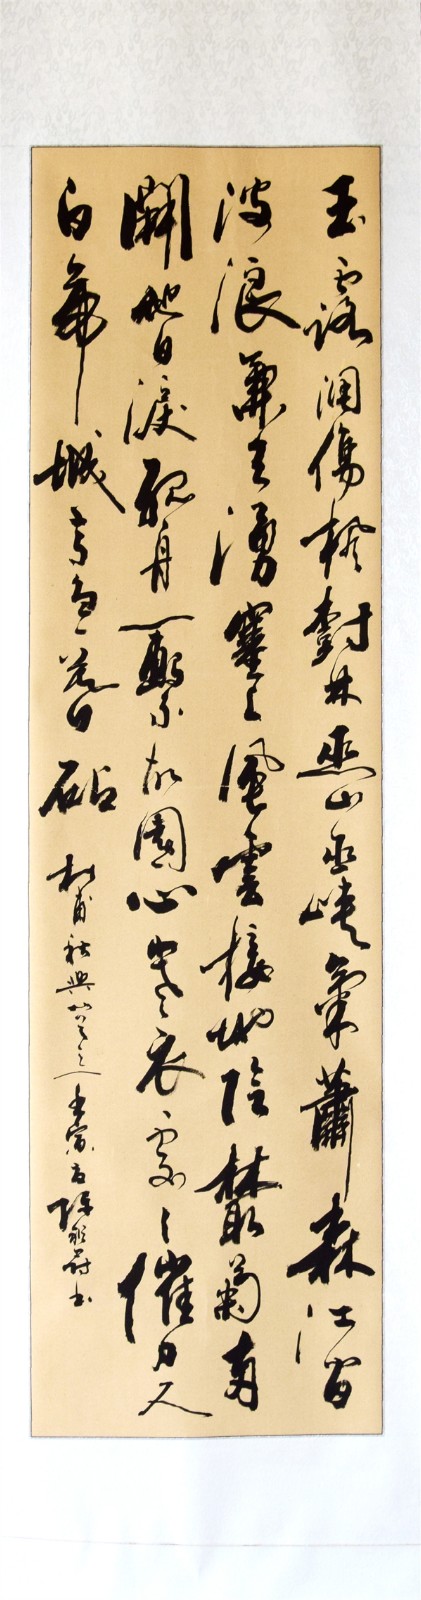 玉露凋傷楓樹林巫山巫峽氣蕭森江間
波浪兼天湧塞上風雲接地陰叢菊兩
開他日淚孤舟一繫故園心寒衣處々催刀尺
白帝城高急暮砧
杜甫秋興八首之一 書